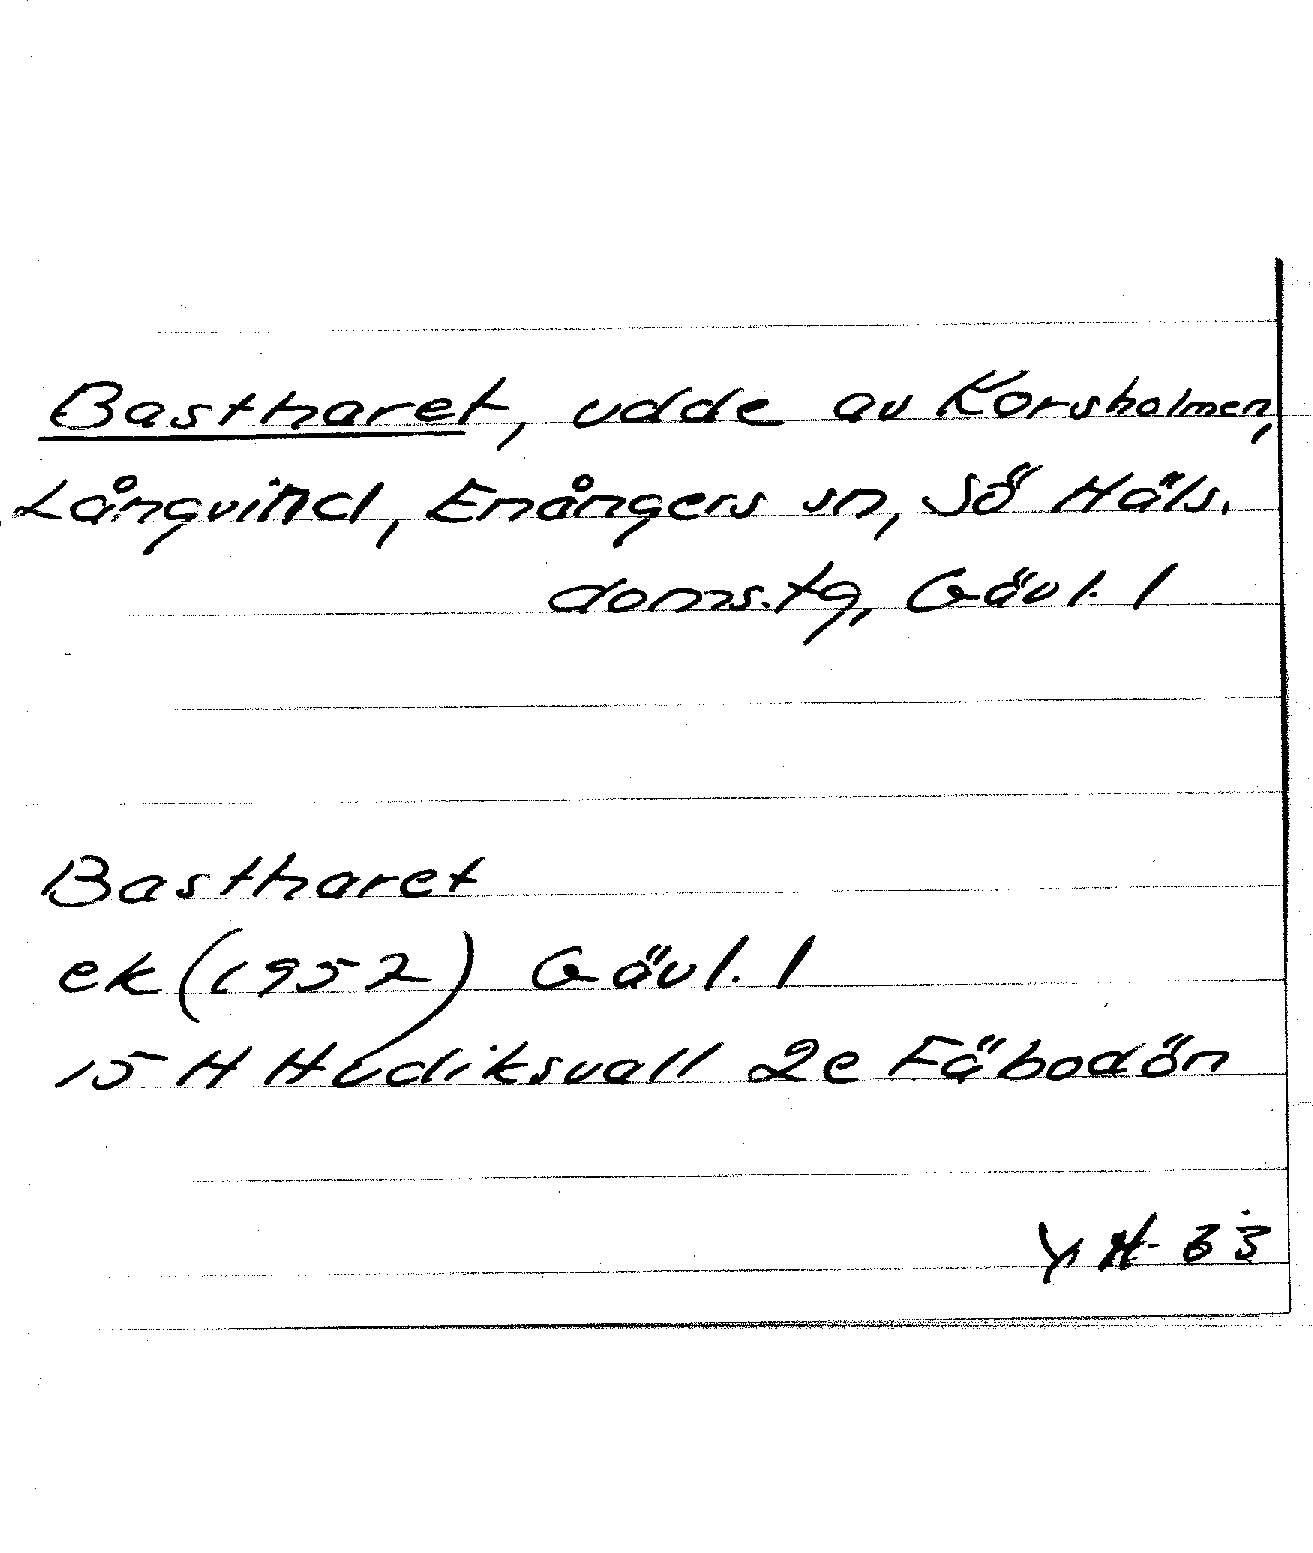 Bastharet, udde av Korsholmen,
Långvind, Enångers sn, Sö Häls.
doms.tg, Gävl. l
Bastharet
ek (1952) Gävl. l
15 H Hudiksvall 2e Fäbodön
YH 63